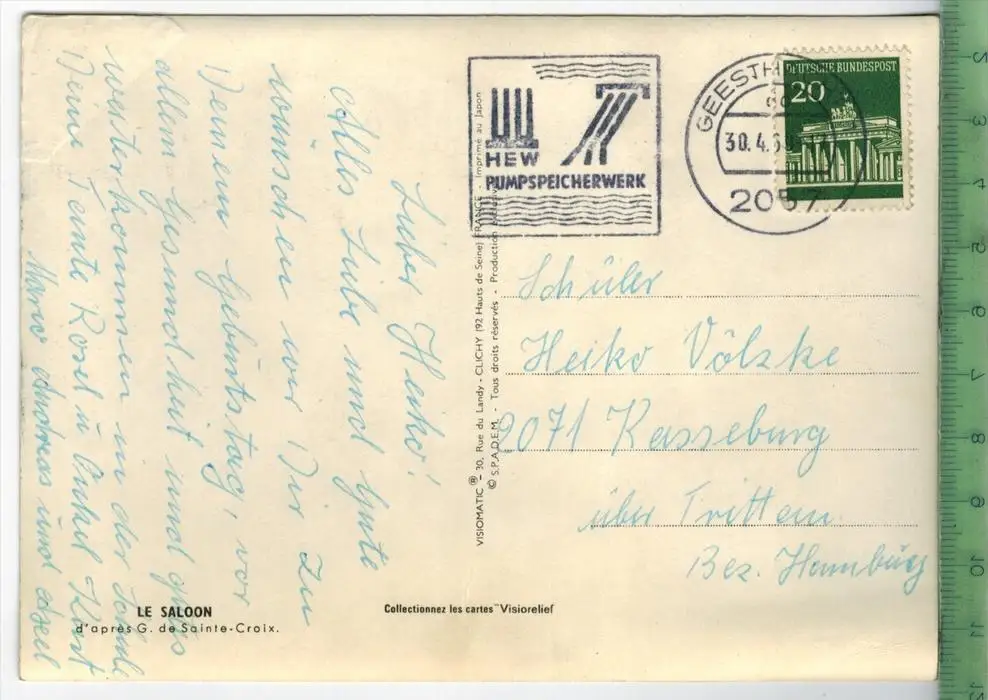 Lieber Heiko!
Alles Liebe und Gute
wünschen wir Dir zu
Deinem Geburtstag, vor
allem Gesundheit und gutes
weiterkommen in der Schule
Deine Tante Rosel u Onkel Kurt
Mario Andreas und Axel
LE SALOON
d'après G. de Sainte-Croix.
Collectionnez les cartes "Visiorelief
VISIOMATIC ® - 30, Rue du Landy - CLICHY (92 Hauts de Seine) FRANCE - Imprimé au Japon
© S.P.A.D.E.M. - Tous droits réservés - Production
HEW
PUMPSPEICHERWERK
GEESTH
30.4.6
2057
DEUTSCHE BUNDESPOST
20
Schüler
Heiko Völzke
2071 Kasseburg
über Trittau
Bez. Hamburg
5
3
4
2
6
7
8
9
10
11
12
13